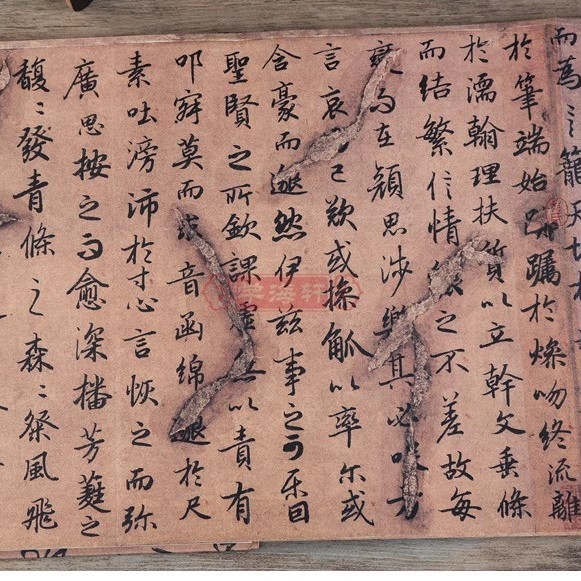 而為籠天地
於筆端始躅於燥吻終流離
於濡翰理扶質以立幹文垂條
而結繁信情之不差故每
而在顏思涉樂其必方
言哀已歎或操觚以率尔或
含豪而邈然伊茲事之可樂固
聖賢之所欽課虛以責有
叩寂莫而求音函綿邈於尺
素吐滂沛於寸心言恢之而弥
廣思按之而愈深播芳蕤之
馥〻發青條之森〻粲風飛